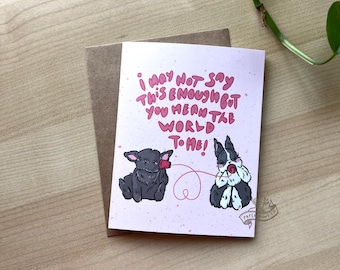 I MAY NOT SAY
THIS ENOUGH BUT
YOU MEAN THE
WORLD
TO ME!